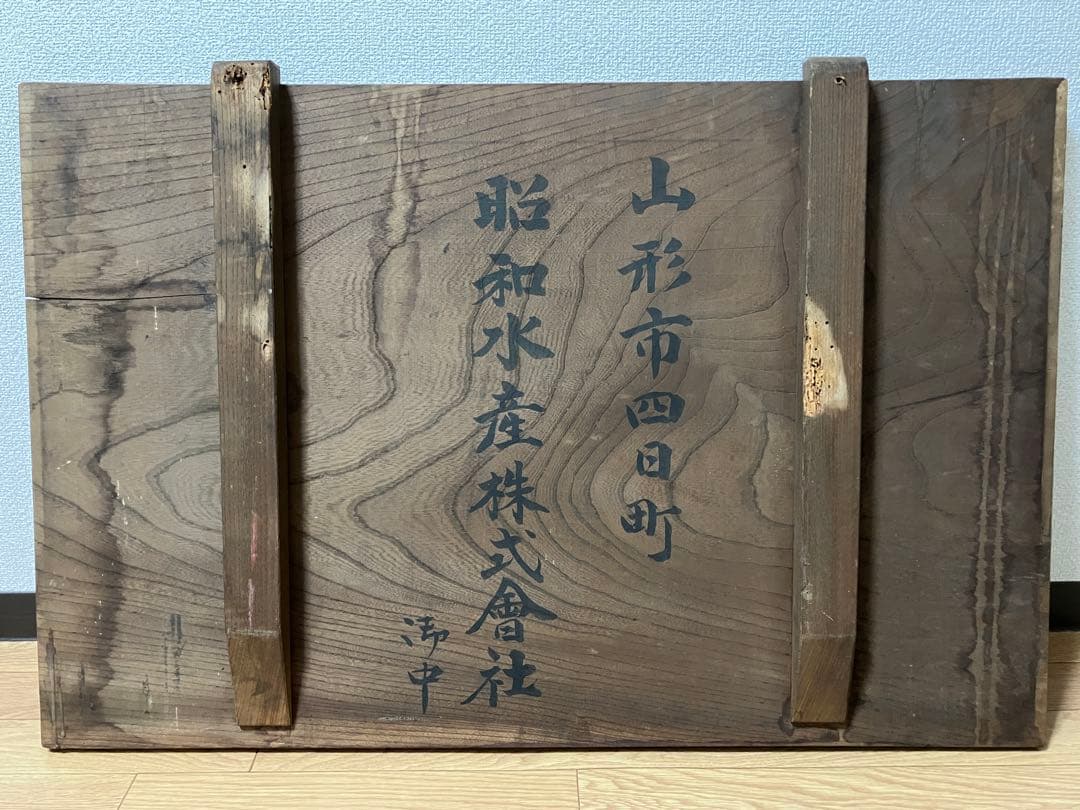 山形市四日町
昭和水産株式會社
御中